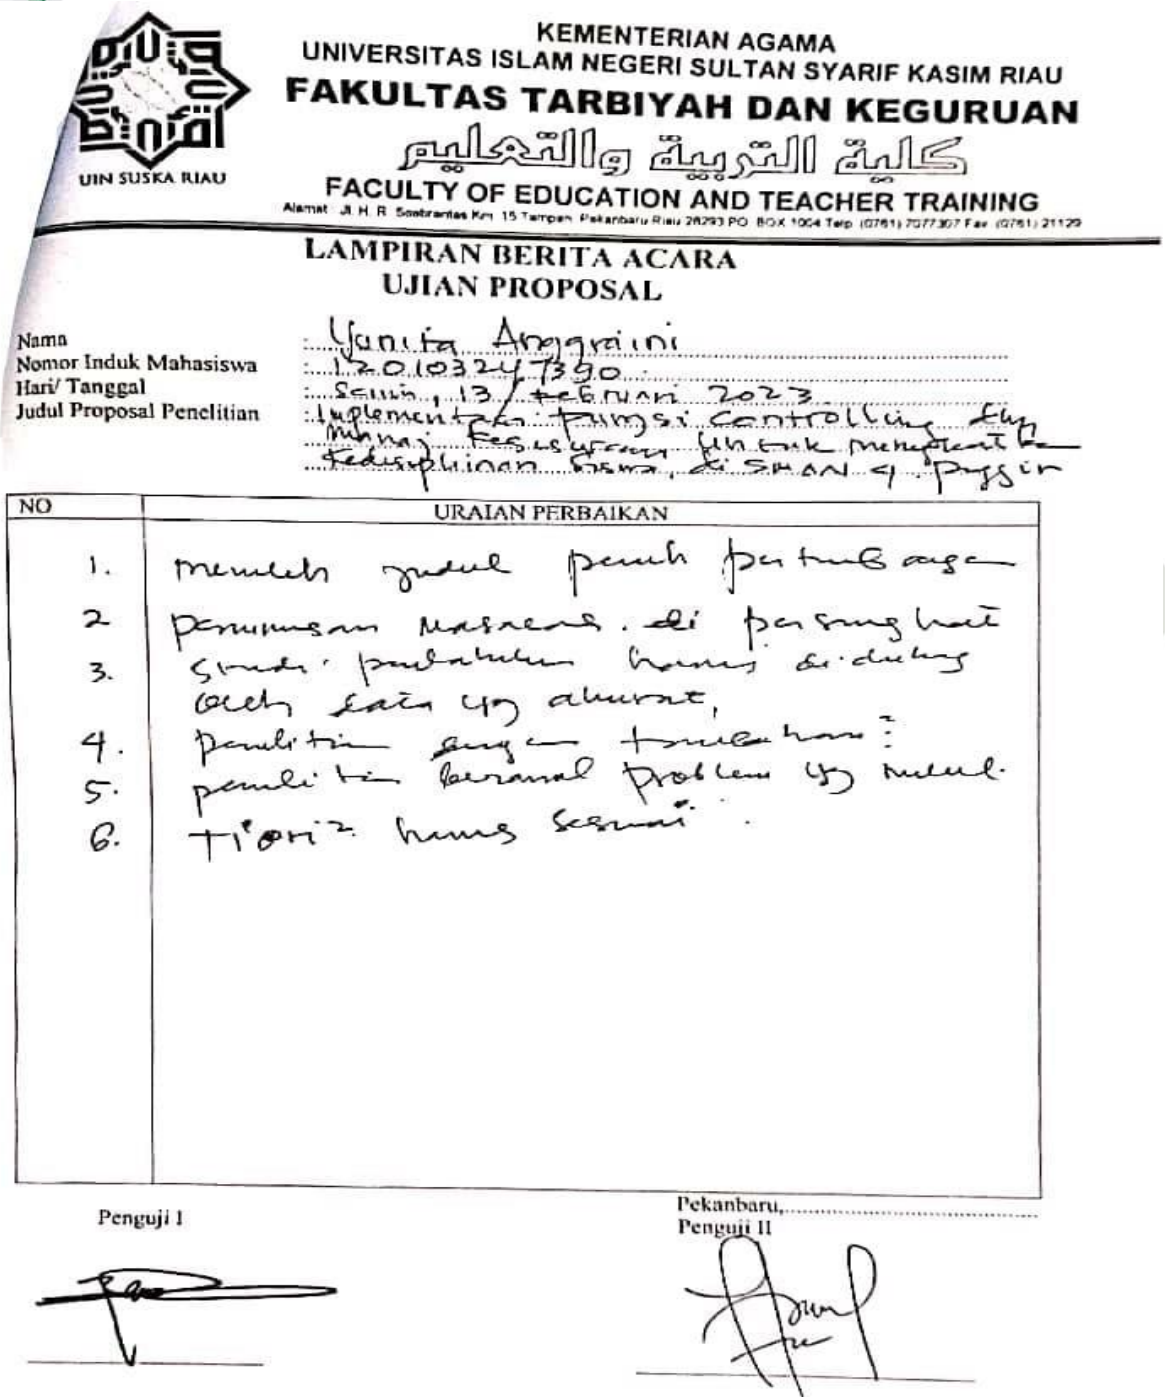 KEMENTERIAN AGAMA
UNIVERSITAS ISLAM NEGERI SULTAN SYARIF KASIM RIAU
FAKULTAS TARBIYAH DAN KEGURUAN
كلية التربية والتعليم
FACULTY OF EDUCATION AND TEACHER TRAINING
UIN SUSKA RIAU
Alamat : Jl. H. R. Soebrantas Km. 15 Tampan Pekanbaru Riau 28293 PO. BOX 1004 Telp. (0761) 7077307 Fax. (0761) 21129
LAMPIRAN BERITA ACARA
UJIAN PROPOSAL
Nama : Yanita Anggraini
Nomor Induk Mahasiswa : 120103247390
Hari/ Tanggal : Senin, 13/Februari 2023
Judul Proposal Penelitian : Implementasi Fungsi Controlling
untuk
Kedisiplinan Siswa di SMAN 4
NO URAIAN PERBAIKAN
1. judul penuh
2 perumusan masalah di persingkat
3. Studi harus didukung
oleh data yg akurat,
4. penelitian
5. penelitian berawal problem yg
6. Tiori2 harus sesuai.
Pekanbaru,
Penguji I Penguji II